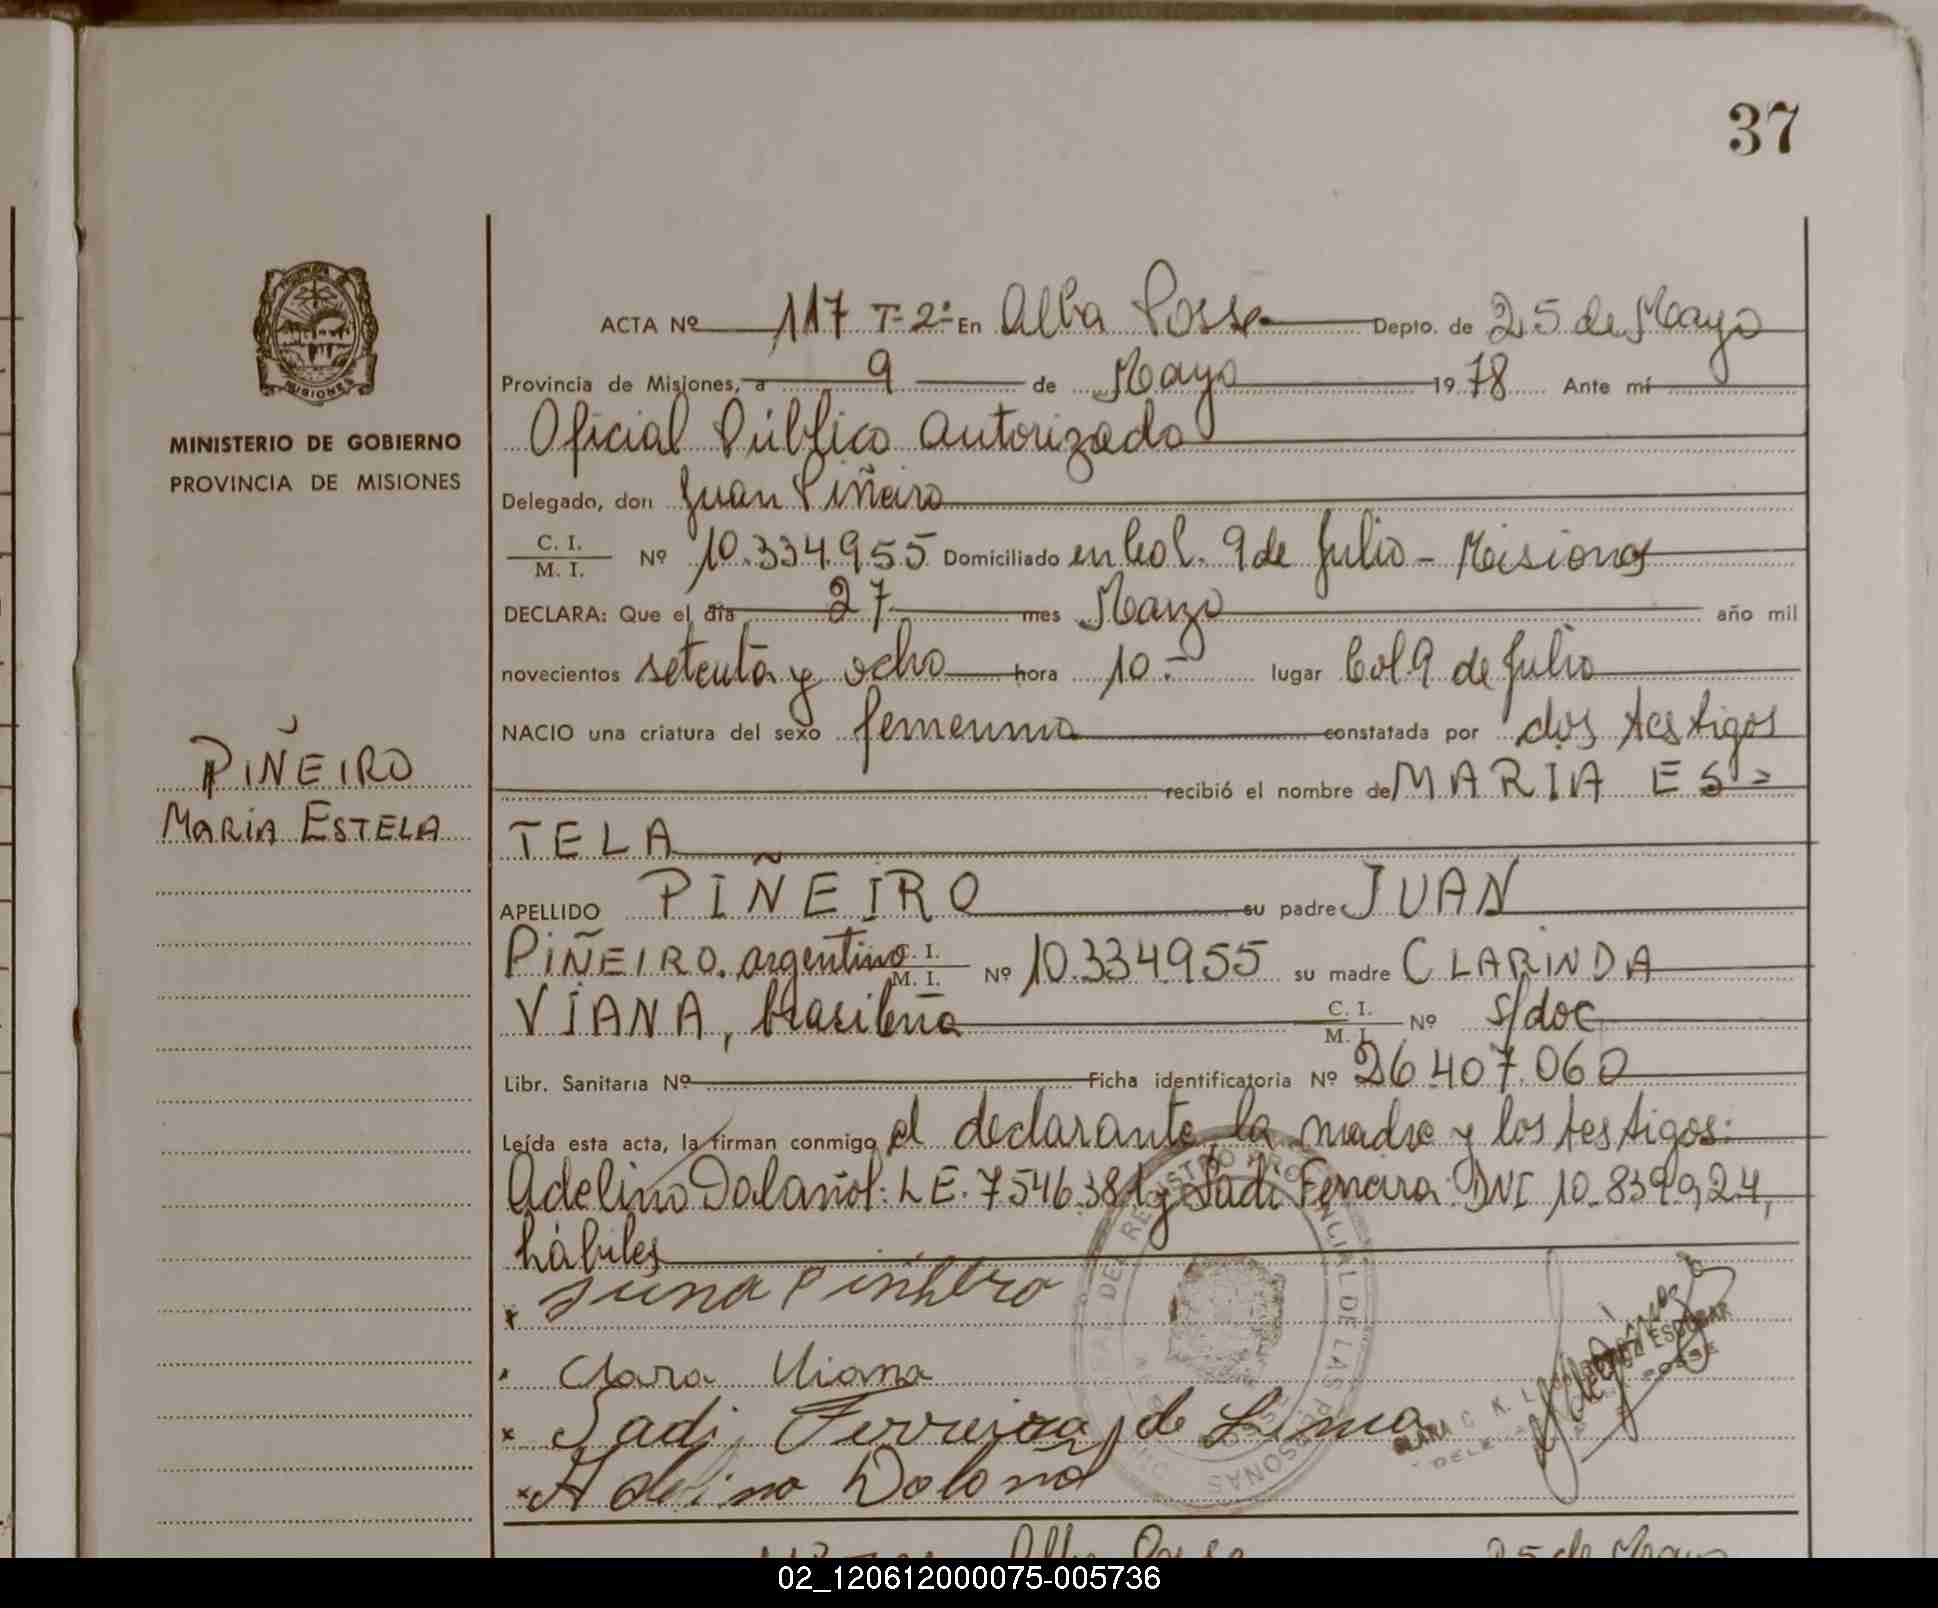 37
ACTA Nº 117 T-2º En Alba Posse Depto. de 25 de Mayo
Provincia de Misiones, a 9 de Mayo 1978 Ante mí
Oficial Público Autorizado
MINISTERIO DE GOBIERNO
PROVINCIA DE MISIONES
Delegado, don Juan Piñeiro
C. I. / M. I. Nº 10.334.955 Domiciliado en Col. 9 de Julio - Misiones
DECLARA: Que el día 27 mes Marzo año mil
novecientos setenta y ocho hora 10.- lugar Col 9 de Julio
NACIO una criatura del sexo femenino constatada por dos testigos
PIÑEIRO
MARIA ESTELA
recibió el nombre de MARIA ES=
TELA
APELLIDO PIÑEIRO su padre JUAN
PIÑEIRO. argentino C. I. / M. I. Nº 10.334955 su madre CLARINDA
VIANA, brasileña C. I. / M. I. Nº s/doc
Libr. Sanitaria Nº Ficha identificatoria Nº 26.407.060
Leída esta acta, la firman conmigo el declarante, la madre y los testigos:
Adelino Dalañol: L E. 7.546.381 y Sadi Ferreira DNI 10.839.924,
hábiles
Clara Viana
Sadi Ferreira de Lima
Adelino
02_120612000075-005736